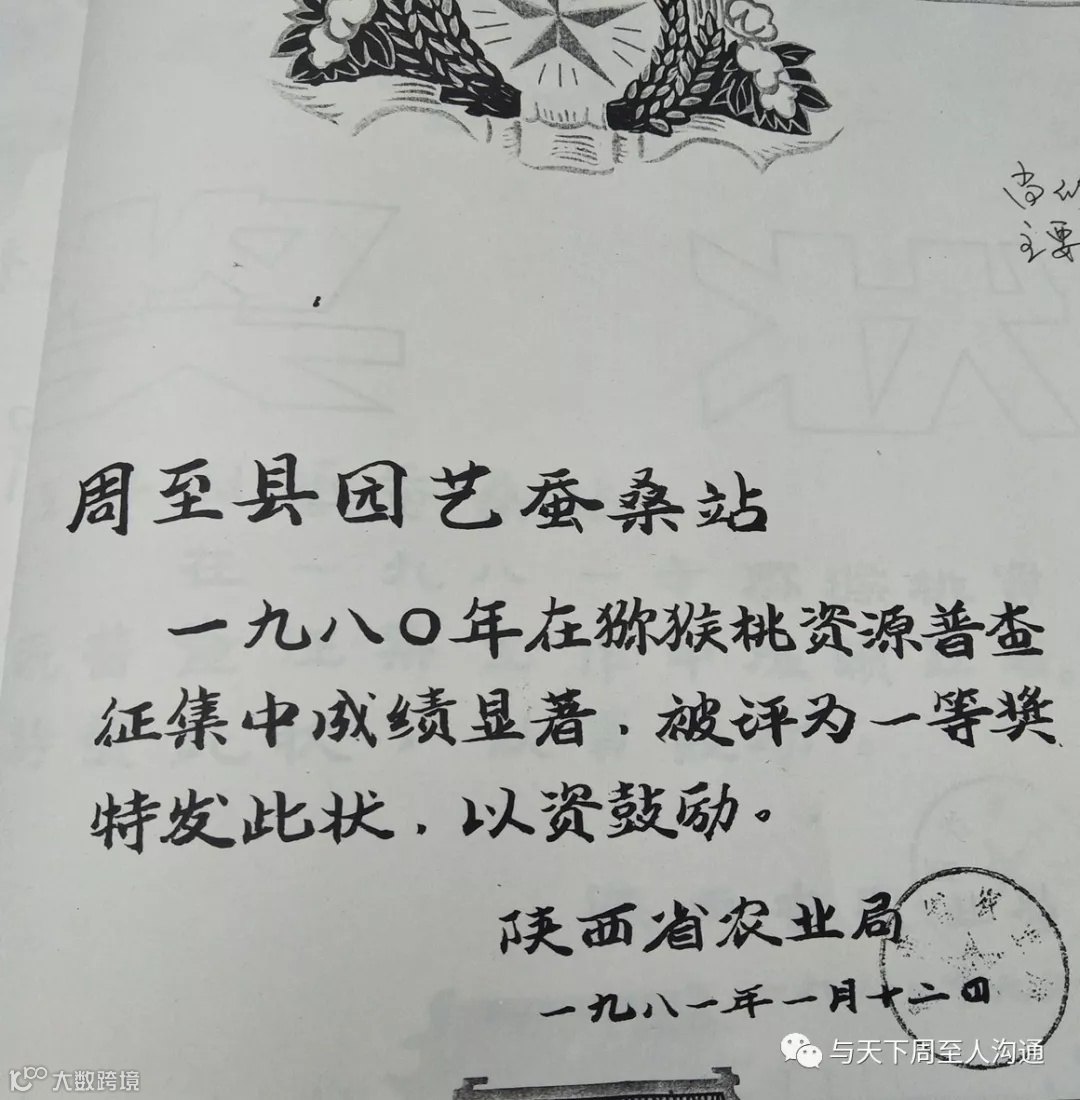 尚
主要
周至县园艺蚕桑站
一九八〇年在猕猴桃资源普查
征集中成绩显著，被评为一等奖
特发此状，以资鼓励。
陕西省农业局
一九八一年一月十二四
与天下周至人沟通
大数跨境